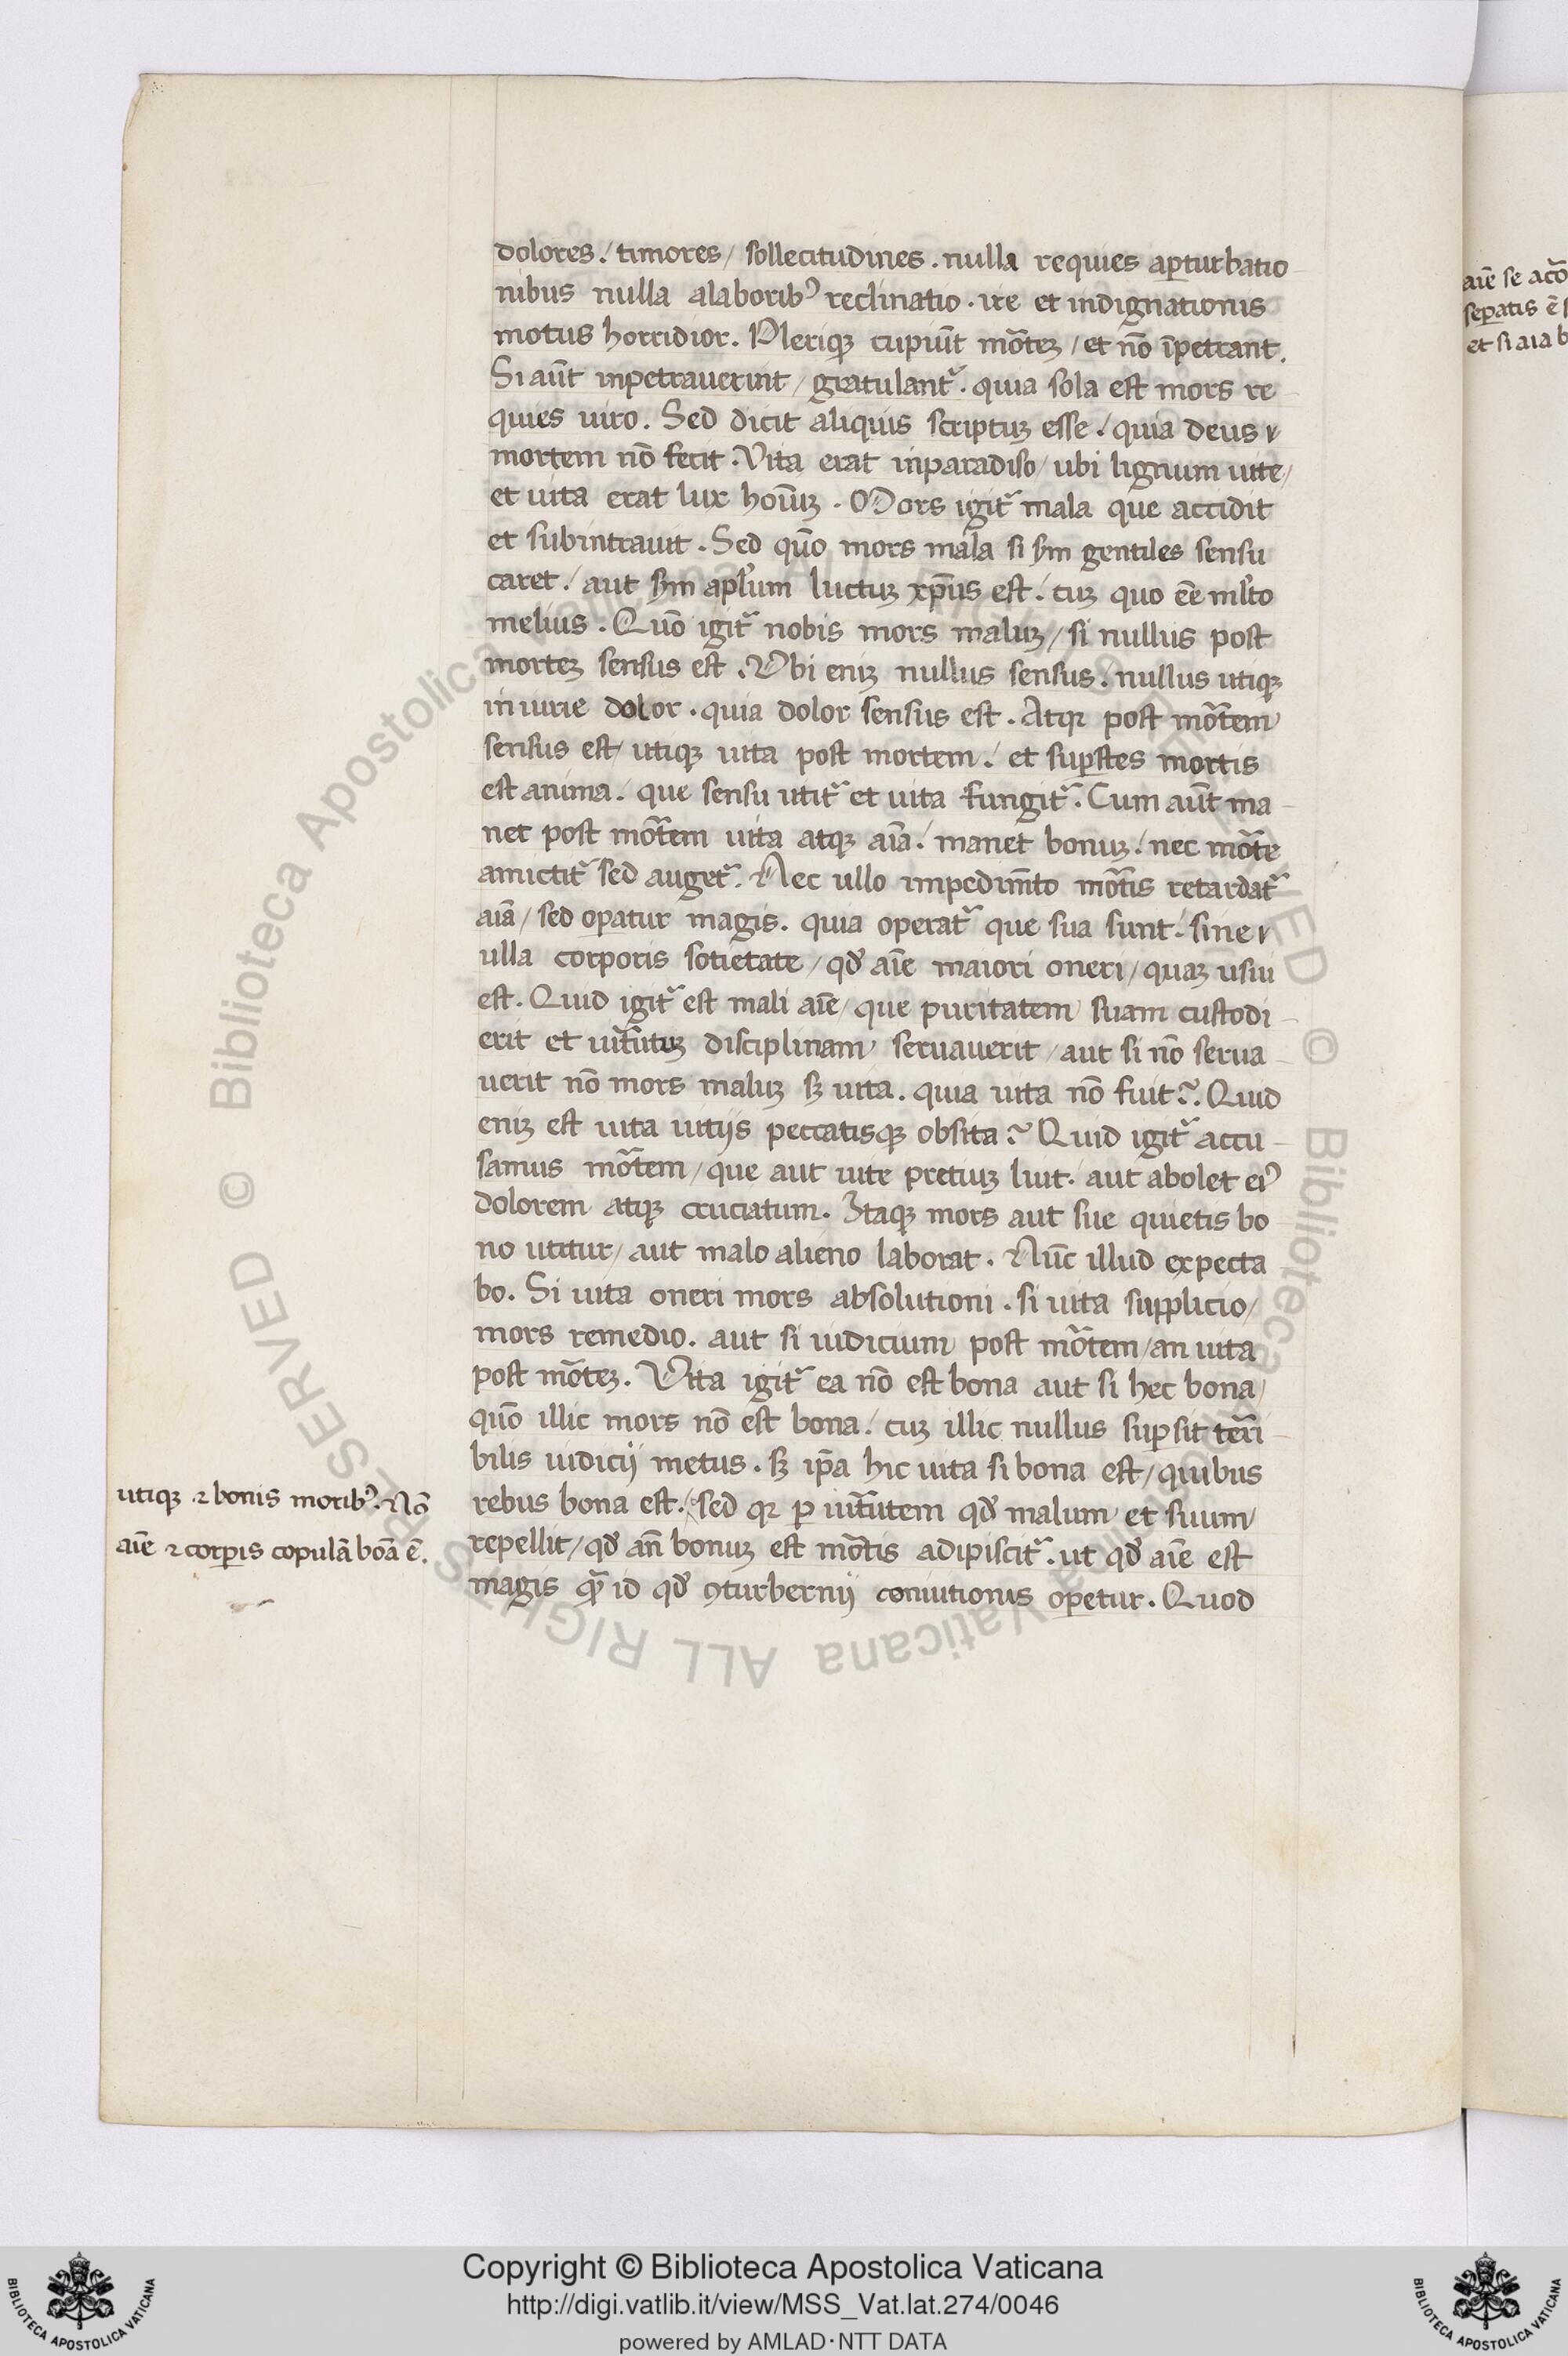 dolores / timores / sollecitudines . nulla requies aperturbatio
nibus nulla alaborib⁹ reclinatio . ire et indignationis
motus horridior . Pleriqꝫ cupiu̅t mo̅teꝫ / et no̅ i̅petrant .
Si au̅t inpetrauerint / gratulant᷑ . quia sola est mors re
quies uiro . Sed dicit aliquis scriptuꝫ esse / quia deus
mortem no̅ fecit . Vita erat inparadiso / ubi lignum uite /
et uita erat lux hoi̅uꝫ . Mors igit᷑ mala que accidit
et subintrauit . Sed quo̅ mors mala si sm̅ gentiles sensu
caret / aut sm̅ apl̅um luctuꝫ xp̅us est / cuꝫ quo ee̅ ml̅to
melius . Quo̅ igit᷑ nobis mors maluꝫ / si nullus post
morteꝫ sensus est . Vbi eniꝫ nullus sensus / nullus utiqꝫ
iniurie dolor . quia dolor sensus est . Atqꝛ post mo̅tem
sensus est / utiqꝫ uita post mortem / et suꝑstes mortis
est anima / que sensu utit᷑ et uita fungit᷑ . Cum au̅t ma
net post mo̅tem uita atqꝫ ai̅a / manet bonuꝫ / nec mo̅te
amictit᷑ sed auget᷑ . Nec ullo impedim̅to mo̅tis retardat᷑
aia̅ / sed oꝑatur magis . quia operat᷑ que sua sunt / sine
ulla corporis sotietate / qd̅ ai̅e maiori oneri / quaꝫ usui
est . Quid igit᷑ est mali ai̅e / que puritatem suam custodi
erit et uir̅tutuꝫ disciplinam seruauerit / aut si no̅ serua
uerit no̅ mors maluꝫ sꝫ uita . quia uita no̅ fuit ? . Quid
eniꝫ est uita uitijs peccatisqꝫ obsita ? Quid igit᷑ accu
samus mo̅tem / que aut uite pretiuꝫ luit . aut abolet ei⁹
dolorem atqꝫ cruciatum . Itaqꝫ mors aut sue quietis bo
no utitur / aut malo alieno laborat . Nu̅c illud expecta
bo . Si uita oneri mors absolutioni . si uita supplicio /
mors remedio . aut si iudicium post mo̅tem / an uita
post mo̅teꝫ . Vita igit᷑ ea no̅ est bona aut si hec bona /
quo̅ illic mors no̅ est bona / cuꝫ illic nullus suꝑsit ter̅i
bilis iudicij metus . sꝫ ip̅a hic uita si bona est / quibus
rebus bona est / sed qꝛ ꝑ uir̅tutem qd̅ malum et suum
repellit / qd̅ an̅ bonuꝫ est mo̅tis adipiscit᷑ . ut qd̅ ai̅e est
magis qᷓ id qd̅ ꝯturbernij coniutionis oꝑetur . Quod
utiqꝫ ⁊ bonis morib⁹ . No̅
ai̅e ⁊ corꝑis copula̅ boa̅ e̅ .
ai̅e se
seꝑatis e̅
et si aia b
© Biblioteca Apostolica Vaticana ALL RIGHTS RESERVED
Copyright © Biblioteca Apostolica Vaticana
http://digi.vatlib.it/view/MSS_Vat.lat.274/0046
powered by AMLAD·NTT DATA
BIBLIOTECA APOSTOLICA VATICANA
BIBLIOTECA APOSTOLICA VATICANA